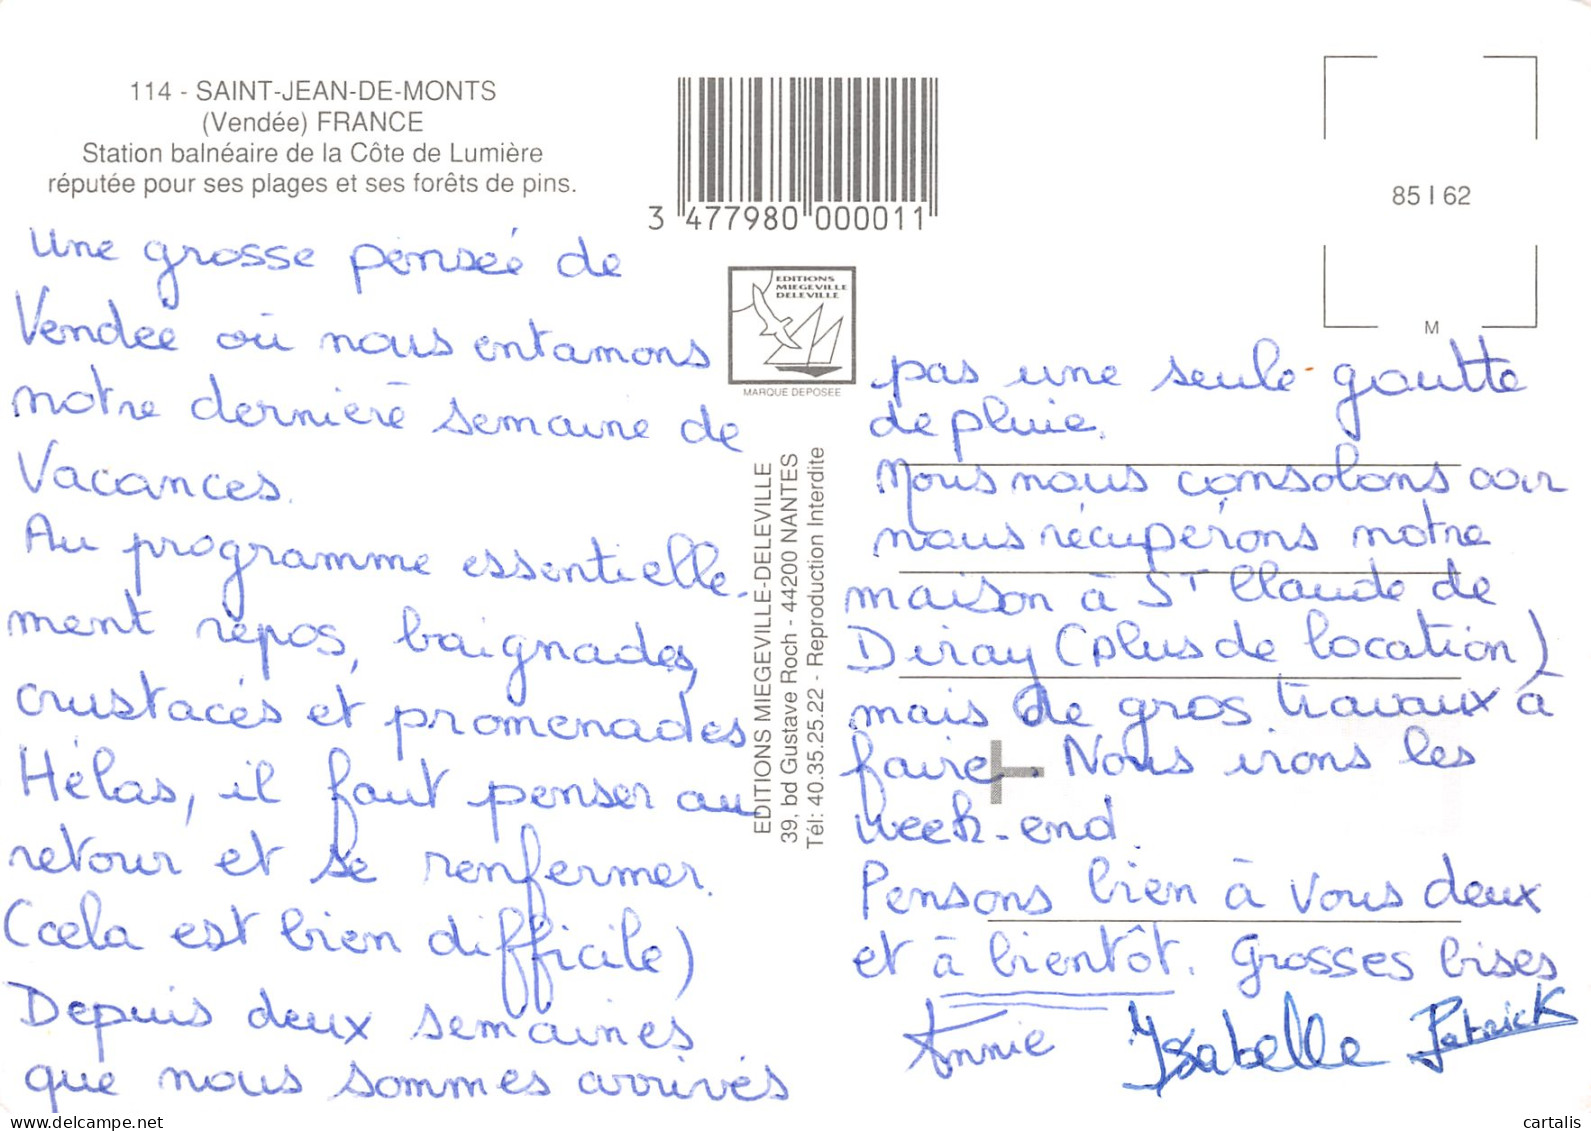 114 - SAINT-JEAN-DE-MONTS
(Vendée) FRANCE
Station balnéaire de la Côte de Lumière
réputée pour ses plages et ses forêts de pins.
3 477980 000011
85 I 62
M
EDITIONS
MIEGEVILLE
DELEVILLE
MARQUE DEPOSEE
EDITIONS MIEGEVILLE-DELEVILLE
39, bd Gustave Roch - 44200 NANTES
Tél: 40.35.25.22 - Reproduction Interdite
Une grosse pensée de
Vendée où nous entamons
notre dernière semaine de
Vacances.
Au programme essentielle-
ment repos, baignades,
crustacés et promenades
Hélas, il faut penser au
retour et se renfermer.
(cela est bien difficile)
Depuis deux semaines
que nous sommes arrivés
pas une seule goutte
de pluie.
Nous nous consolons car
nous récupérons notre
maison à St Claude de
Diray (plus de location)
mais de gros travaux à
faire. Nous irons les
week-end.
Pensons bien à vous deux
et à bientôt. Grosses bises
Annie Isabelle Patrick
delcampe.net
cartalis